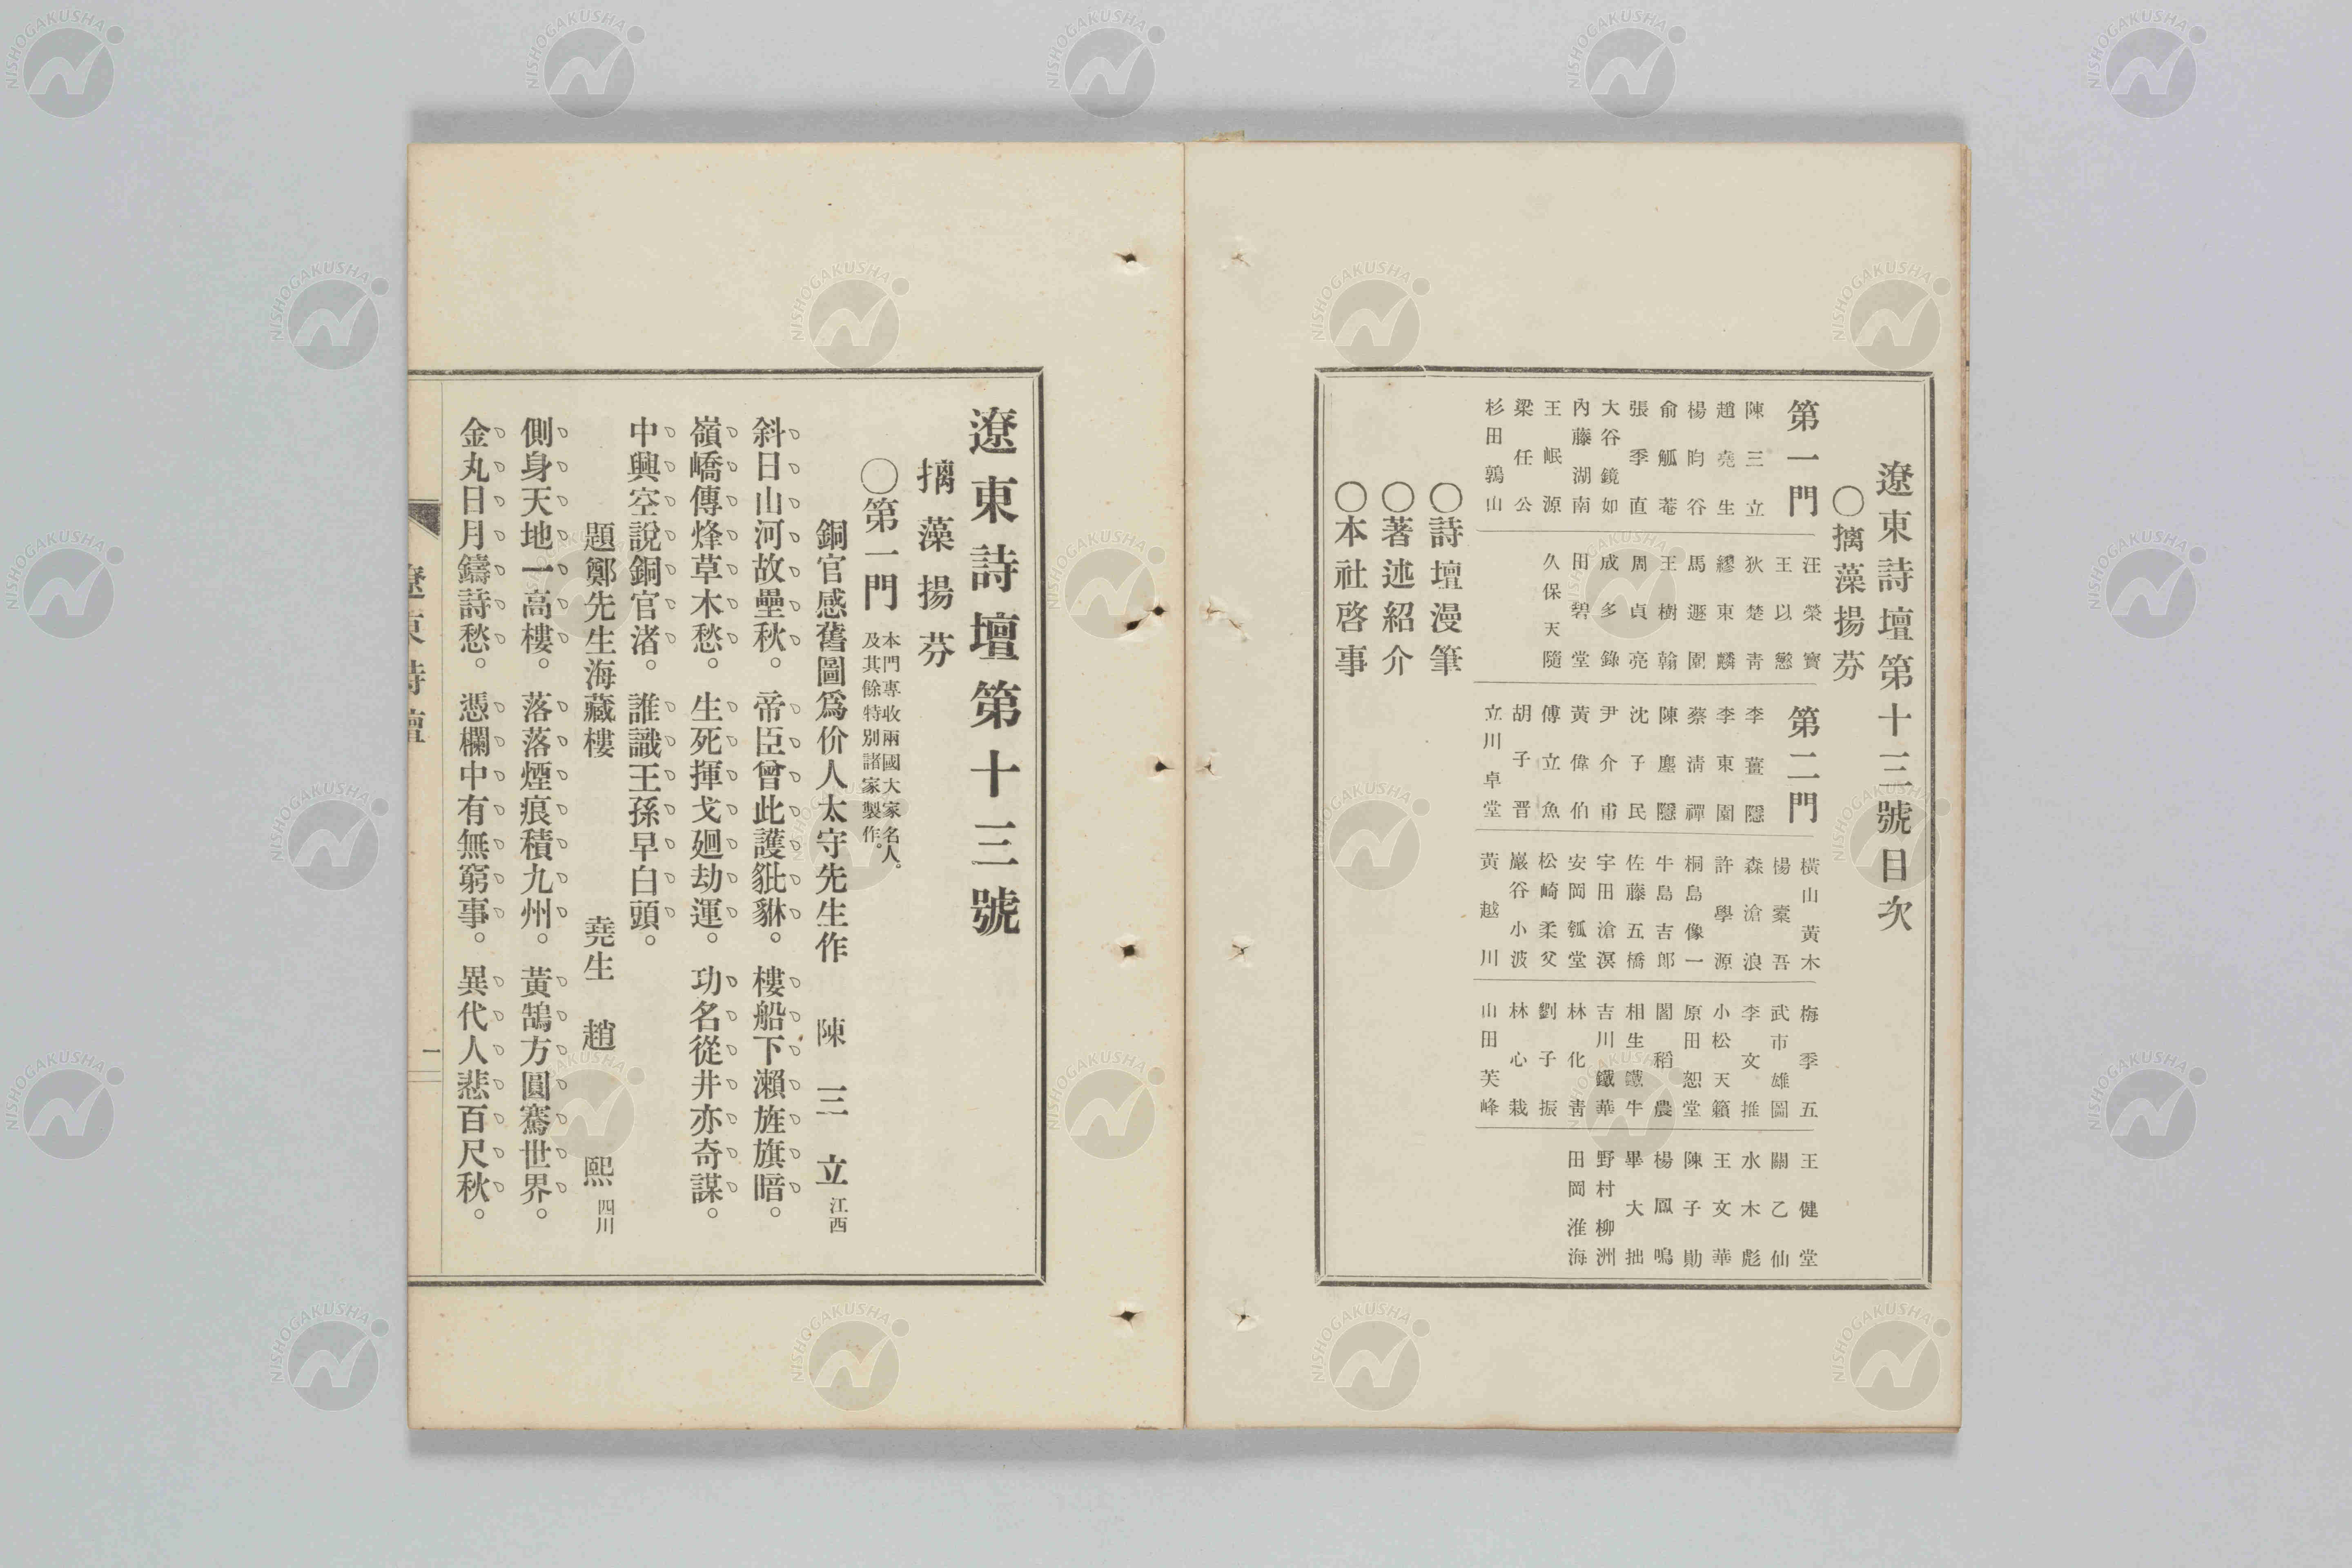 遼東詩壇第十三號目次
○摛藻揚芬
第一門
陳三立
趙堯生
楊昀谷
俞觚菴
張季直
大谷鏡如
內藤湖南
王岷源
梁任公
杉田鶉山
汪榮寶
王以慜
狄楚青
繆東麟
馬遯園
王樹翰
周貞亮
成多錄
田碧堂
久保天隨
第二門
李薑隱
李東園
蔡清禪
陳塵隱
沈子民
尹介甫
黃偉伯
傅立魚
胡子晋
立川卓堂
橫山黃木
楊槖吾
森滄浪
許學源
桐島像一
牛島吉郎
佐藤五橋
宇田滄溟
安岡瓠堂
松崎柔父
巖谷小波
黃越川
梅季五
武市雄圖
李文推
小松天籟
原田恕堂
閻稻農
相生鐵牛
吉川鐵華
林化青
劉子振
林心栽
山田芙峰
王健堂
關乙仙
水木彪
王文華
陳子勛
楊鳳鳴
畢大拙
野村柳洲
田岡淮海
○詩壇漫筆
○著述紹介
○本社啓事
遼東詩壇第十三號
摛藻揚芬
○第一門 本門專收兩國大家名人。
及其餘特別諸家製作。
銅官感舊圖爲价人太守先生作 陳三立 江西
斜日山河故壘秋。帝臣曾此護豼貅。樓船下瀨旌旗暗。
嶺嶠傳烽草木愁。生死揮戈廻劫運。功名從井亦奇謀。
中興空說銅官渚。誰識王孫早白頭。
題鄭先生海藏樓 堯生 趙熙 四川
側身天地一高樓。落落煙痕積九州。黃鵠方圓騫世界。
金丸日月鑄詩愁。憑欄中有無窮事。異代人悲百尺秋。
遼東詩壇
一
NISHOGAKUSHA